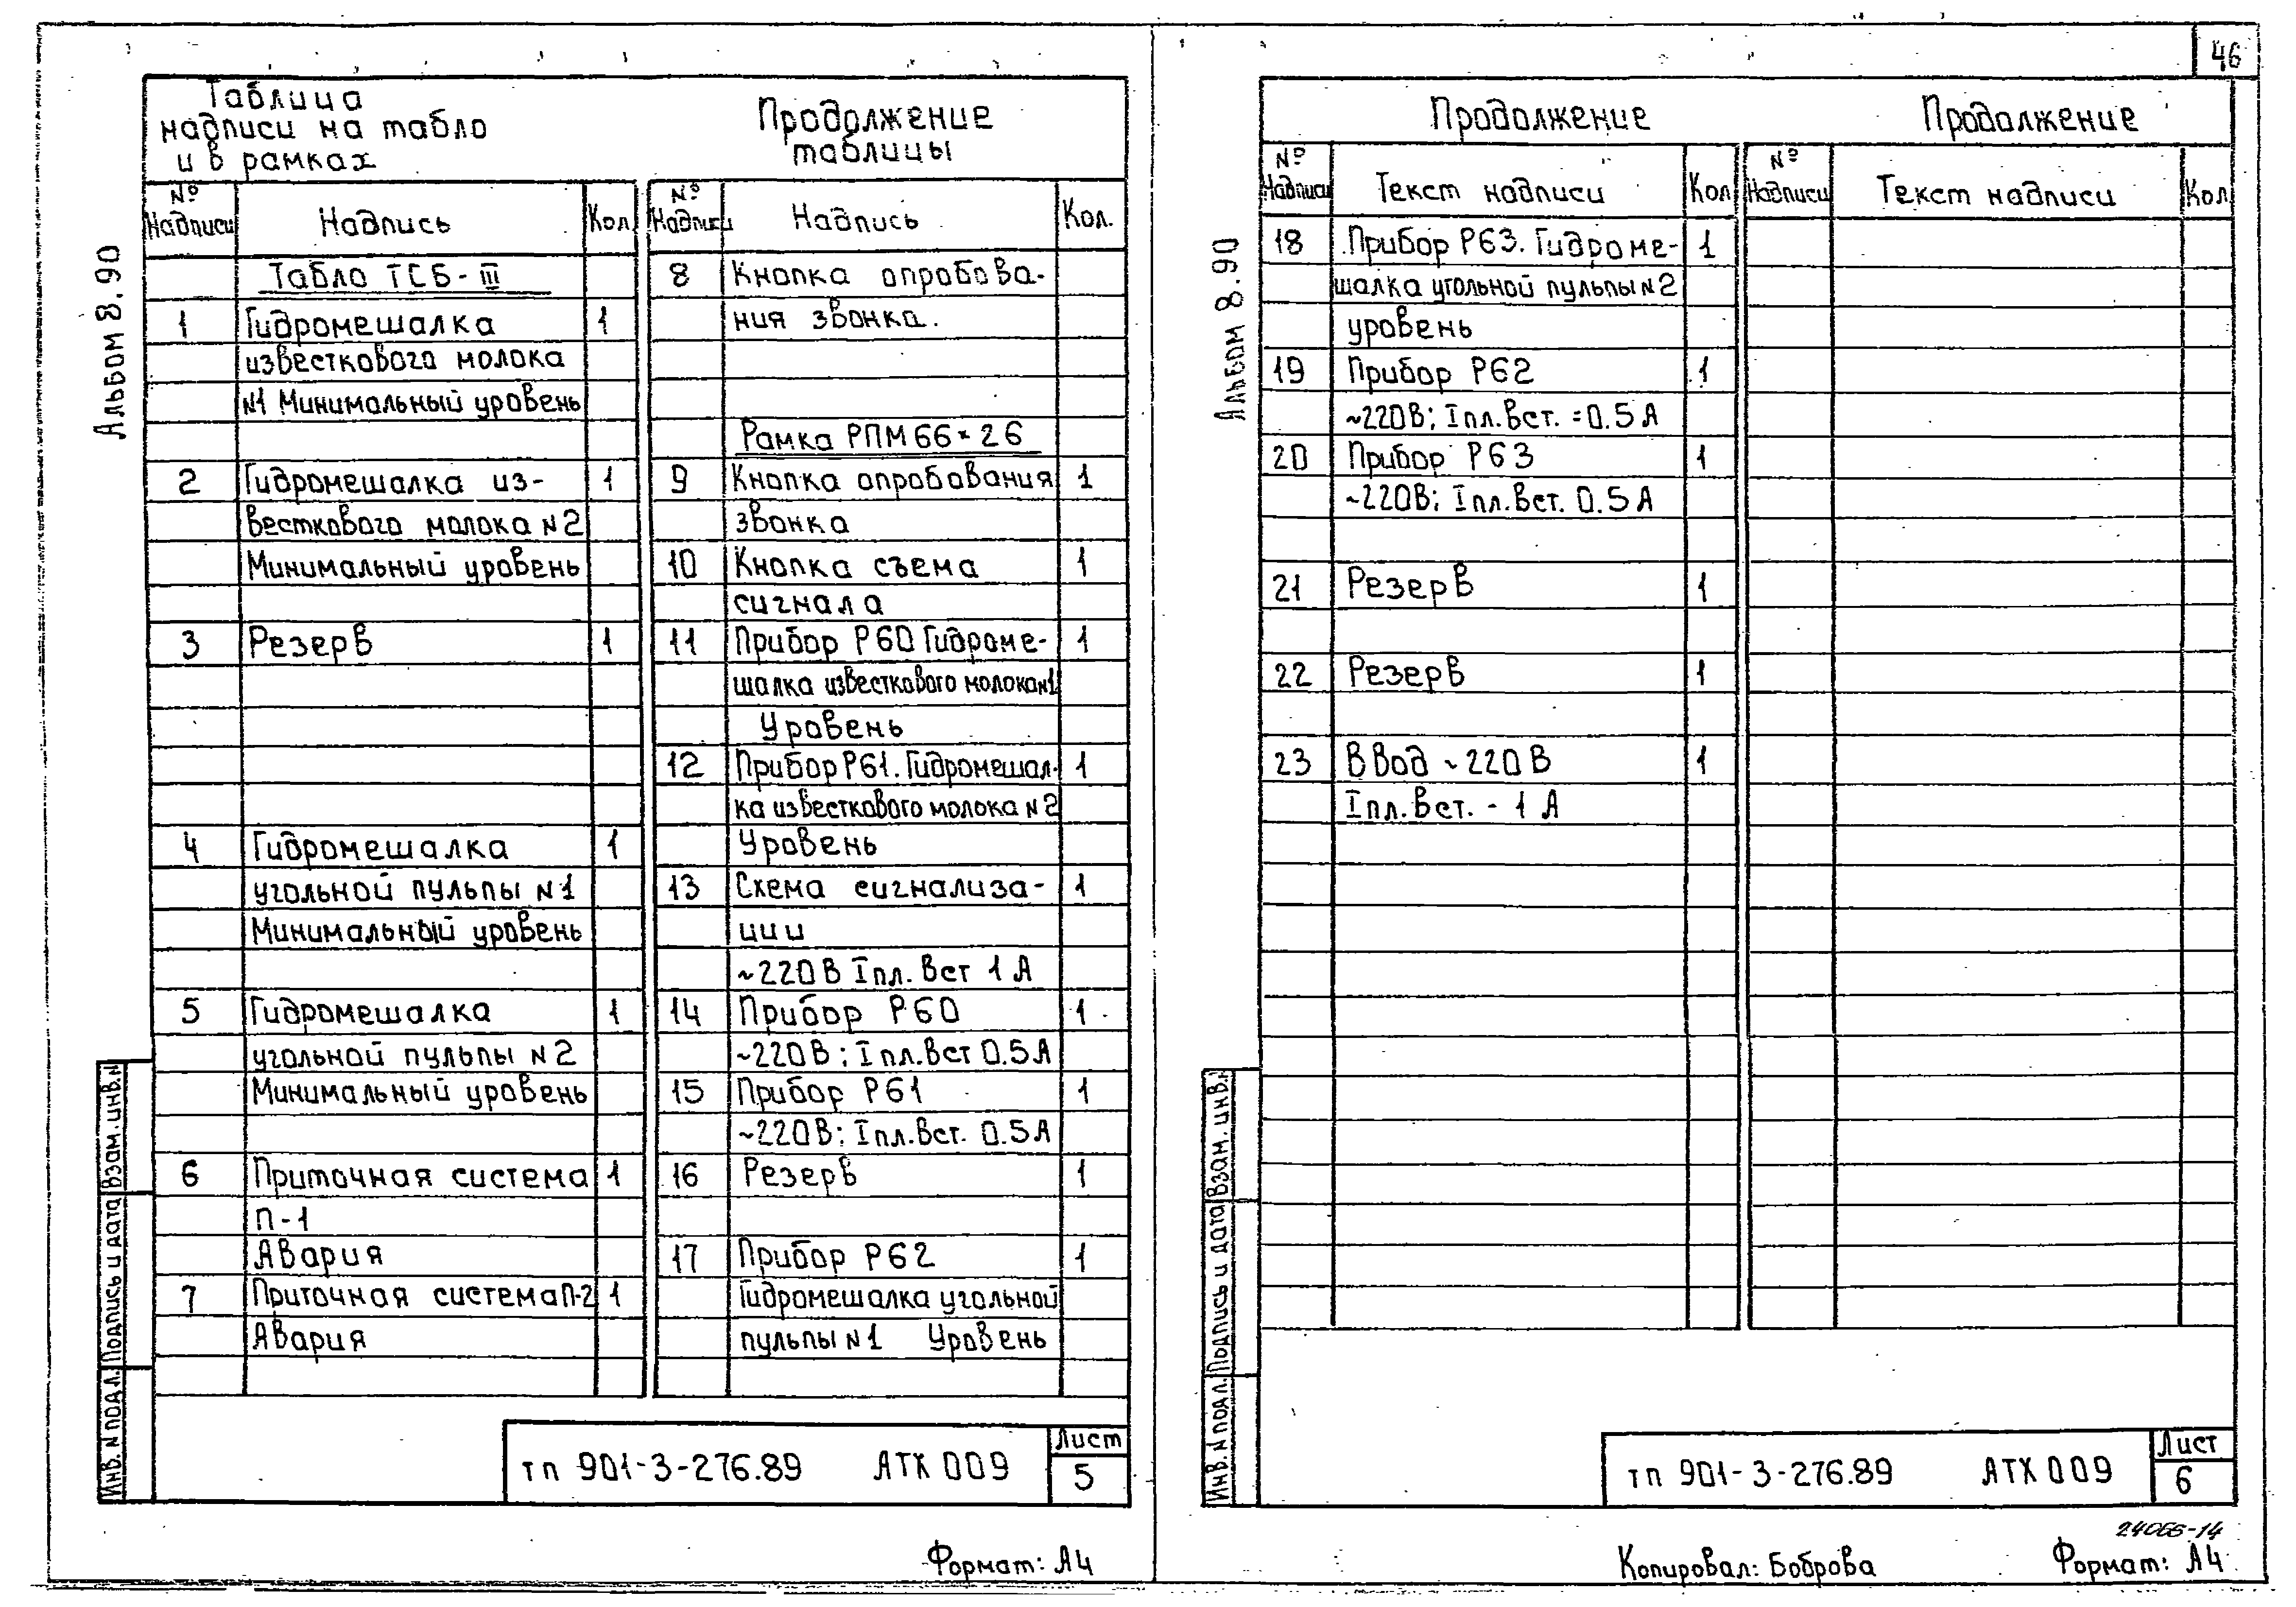 46
Таблица
надписи на табло
и в рамках
№
Надписи
Надпись
Кол.
Табло ТСБ-III
1 Гидромешалка 1
известкового молока
N1 Минимальный уровень
2 Гидромешалка из- 1
весткового молока N2
Минимальный уровень
3 Резерв 1
4 Гидромешалка 1
угольной пульпы N1
Минимальный уровень
5 Гидромешалка 1
угольной пульпы N2
Минимальный уровень
6 Приточная система 1
П-1
Авария
7 Приточная система П-2 1
Авария
Продолжение
таблицы
№
Надписи
Надпись
Кол.
8 Кнопка опробова-
ния звонка.
Рамка РПМ 66×26
9 Кнопка опробования 1
звонка
10 Кнопка съема 1
сигнала
11 Прибор Р60 Гидроме- 1
шалка известкового молока N1
Уровень
12 Прибор Р61. Гидромешал- 1
ка известкового молока N2
Уровень
13 Схема сигнализа- 1
ции
~220В Iпл. Вст 1А
14 Прибор Р60 1
~220В; Iпл.Вст 0.5А
15 Прибор Р61 1
~220В; Iпл.Вст. 0.5А
16 Резерв 1
17 Прибор Р62 1
Гидромешалка угольной
пульпы N1 Уровень
Альбом 8.90
Инв. N подл. Подпись и дата Взам. инв. N
тп 901-3-276.89 АТХ 009
Лист
5
Формат: А4
Продолжение
№
Надписи
Текст надписи
Кол
18 Прибор Р63. Гидроме- 1
шалка угольной пульпы N2
уровень
19 Прибор Р62 1
~220В; Iпл. Вст. = 0.5А
20 Прибор Р63 1
~220В; Iпл. Вст. 0.5А
21 Резерв 1
22 Резерв 1
23 Ввод ~220В 1
Iпл. Вст. - 1А
Продолжение
№
Надписи
Текст надписи
Кол
Альбом 8.90
Инв. N подл. Подпись и дата Взам. инв. N
тп 901-3-276.89 АТХ 009
Лист
6
24066-14
Копировал: Боброва
Формат: А4